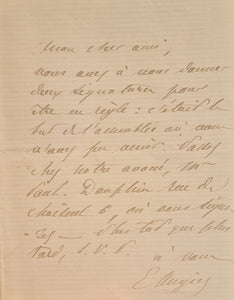 mon cher ami,
vous avez à nous donner
deux signatures pour
être en règle : c'était le
but de l'assemblée où vous
n'avez pu venir. Passez
chez notre avoué, Mr
Paul Dauphin rue de
6 où vous signe-
rez – plus tôt que plus
tard, S. V. P.
à vous
E Augier